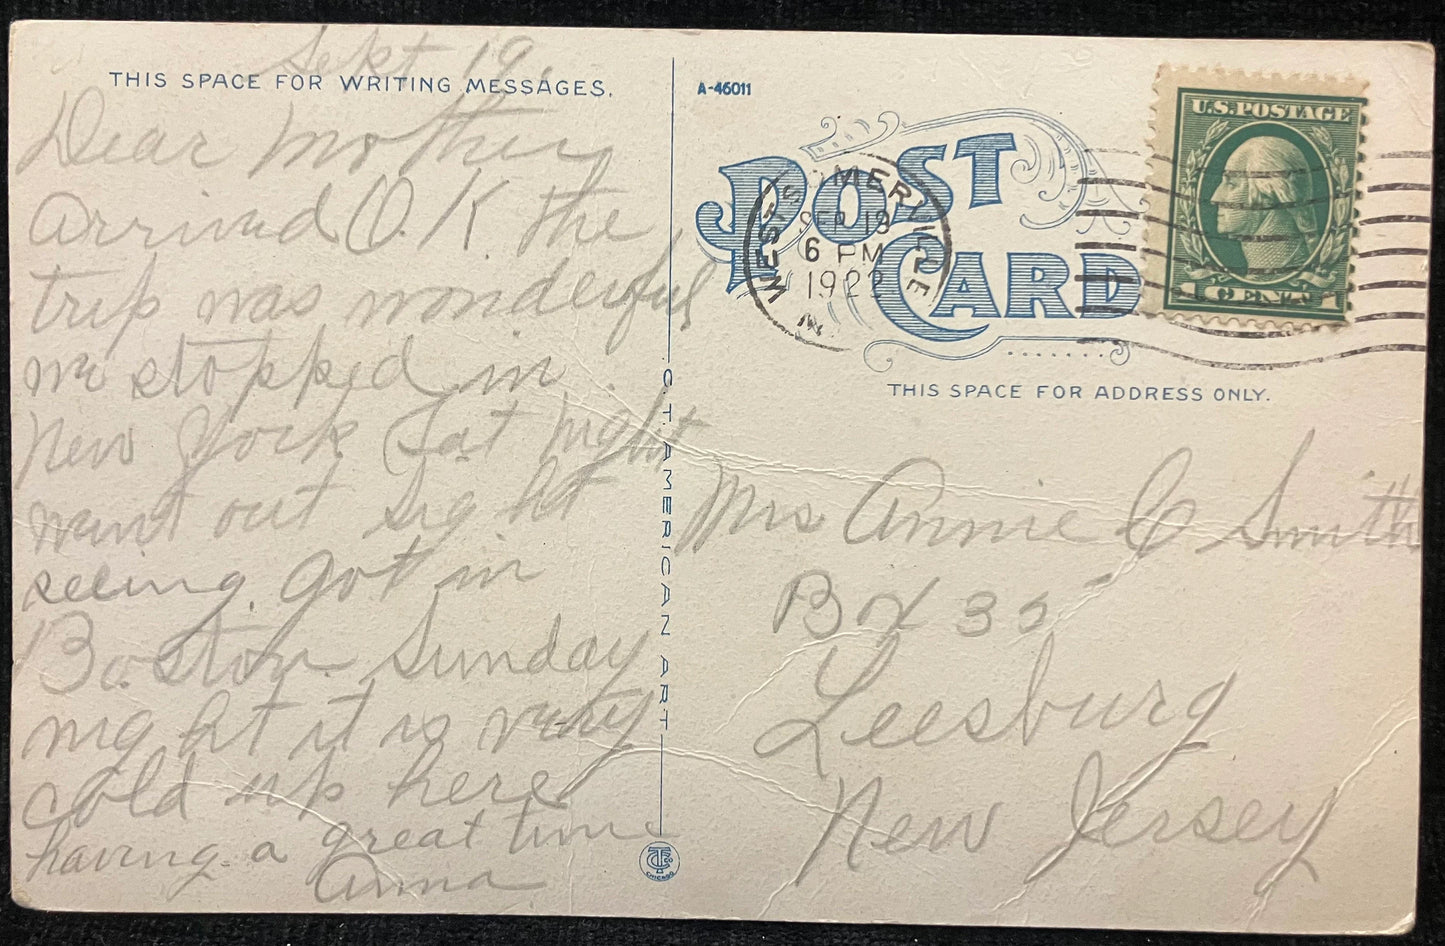 Sept 19
THIS SPACE FOR WRITING MESSAGES.
Dear Mother
Arrived O.K the
trip was wonderful
we stopped in
New York Sat night
went out sight
seeing. got in
Boston Sunday
night it is very
cold up here
having a great time
Anna
C. T. AMERICAN ART
CTCO
CHICAGO
A-46011
POST
CARD
WEST SOMERVILLE
SEP 19
6 PM
1922
U.S. POSTAGE
1 CENT 1
THIS SPACE FOR ADDRESS ONLY.
Mrs Annie C Smith
Box 35
Leesburg
New Jersey